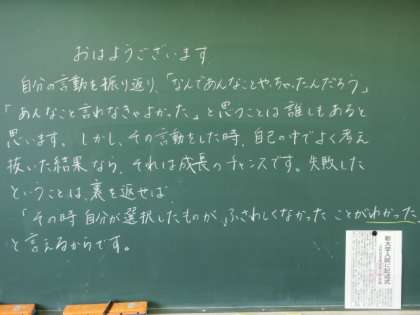 おはようございます
自分の言動を振り返り、「なんであんなことやっちゃったんだろう」
「あんなこと言わなきゃよかった」と思うことは誰しもあると
思います。しかし、その言動をした時、自己の中でよく考え
抜いた結果なら、それは成長のチャンスです。失敗した
ということは、裏を返せば、
「その時自分が選択したものが、ふさわしくなかったことがわかった」
と言えるからです。
新大学入試に記述式